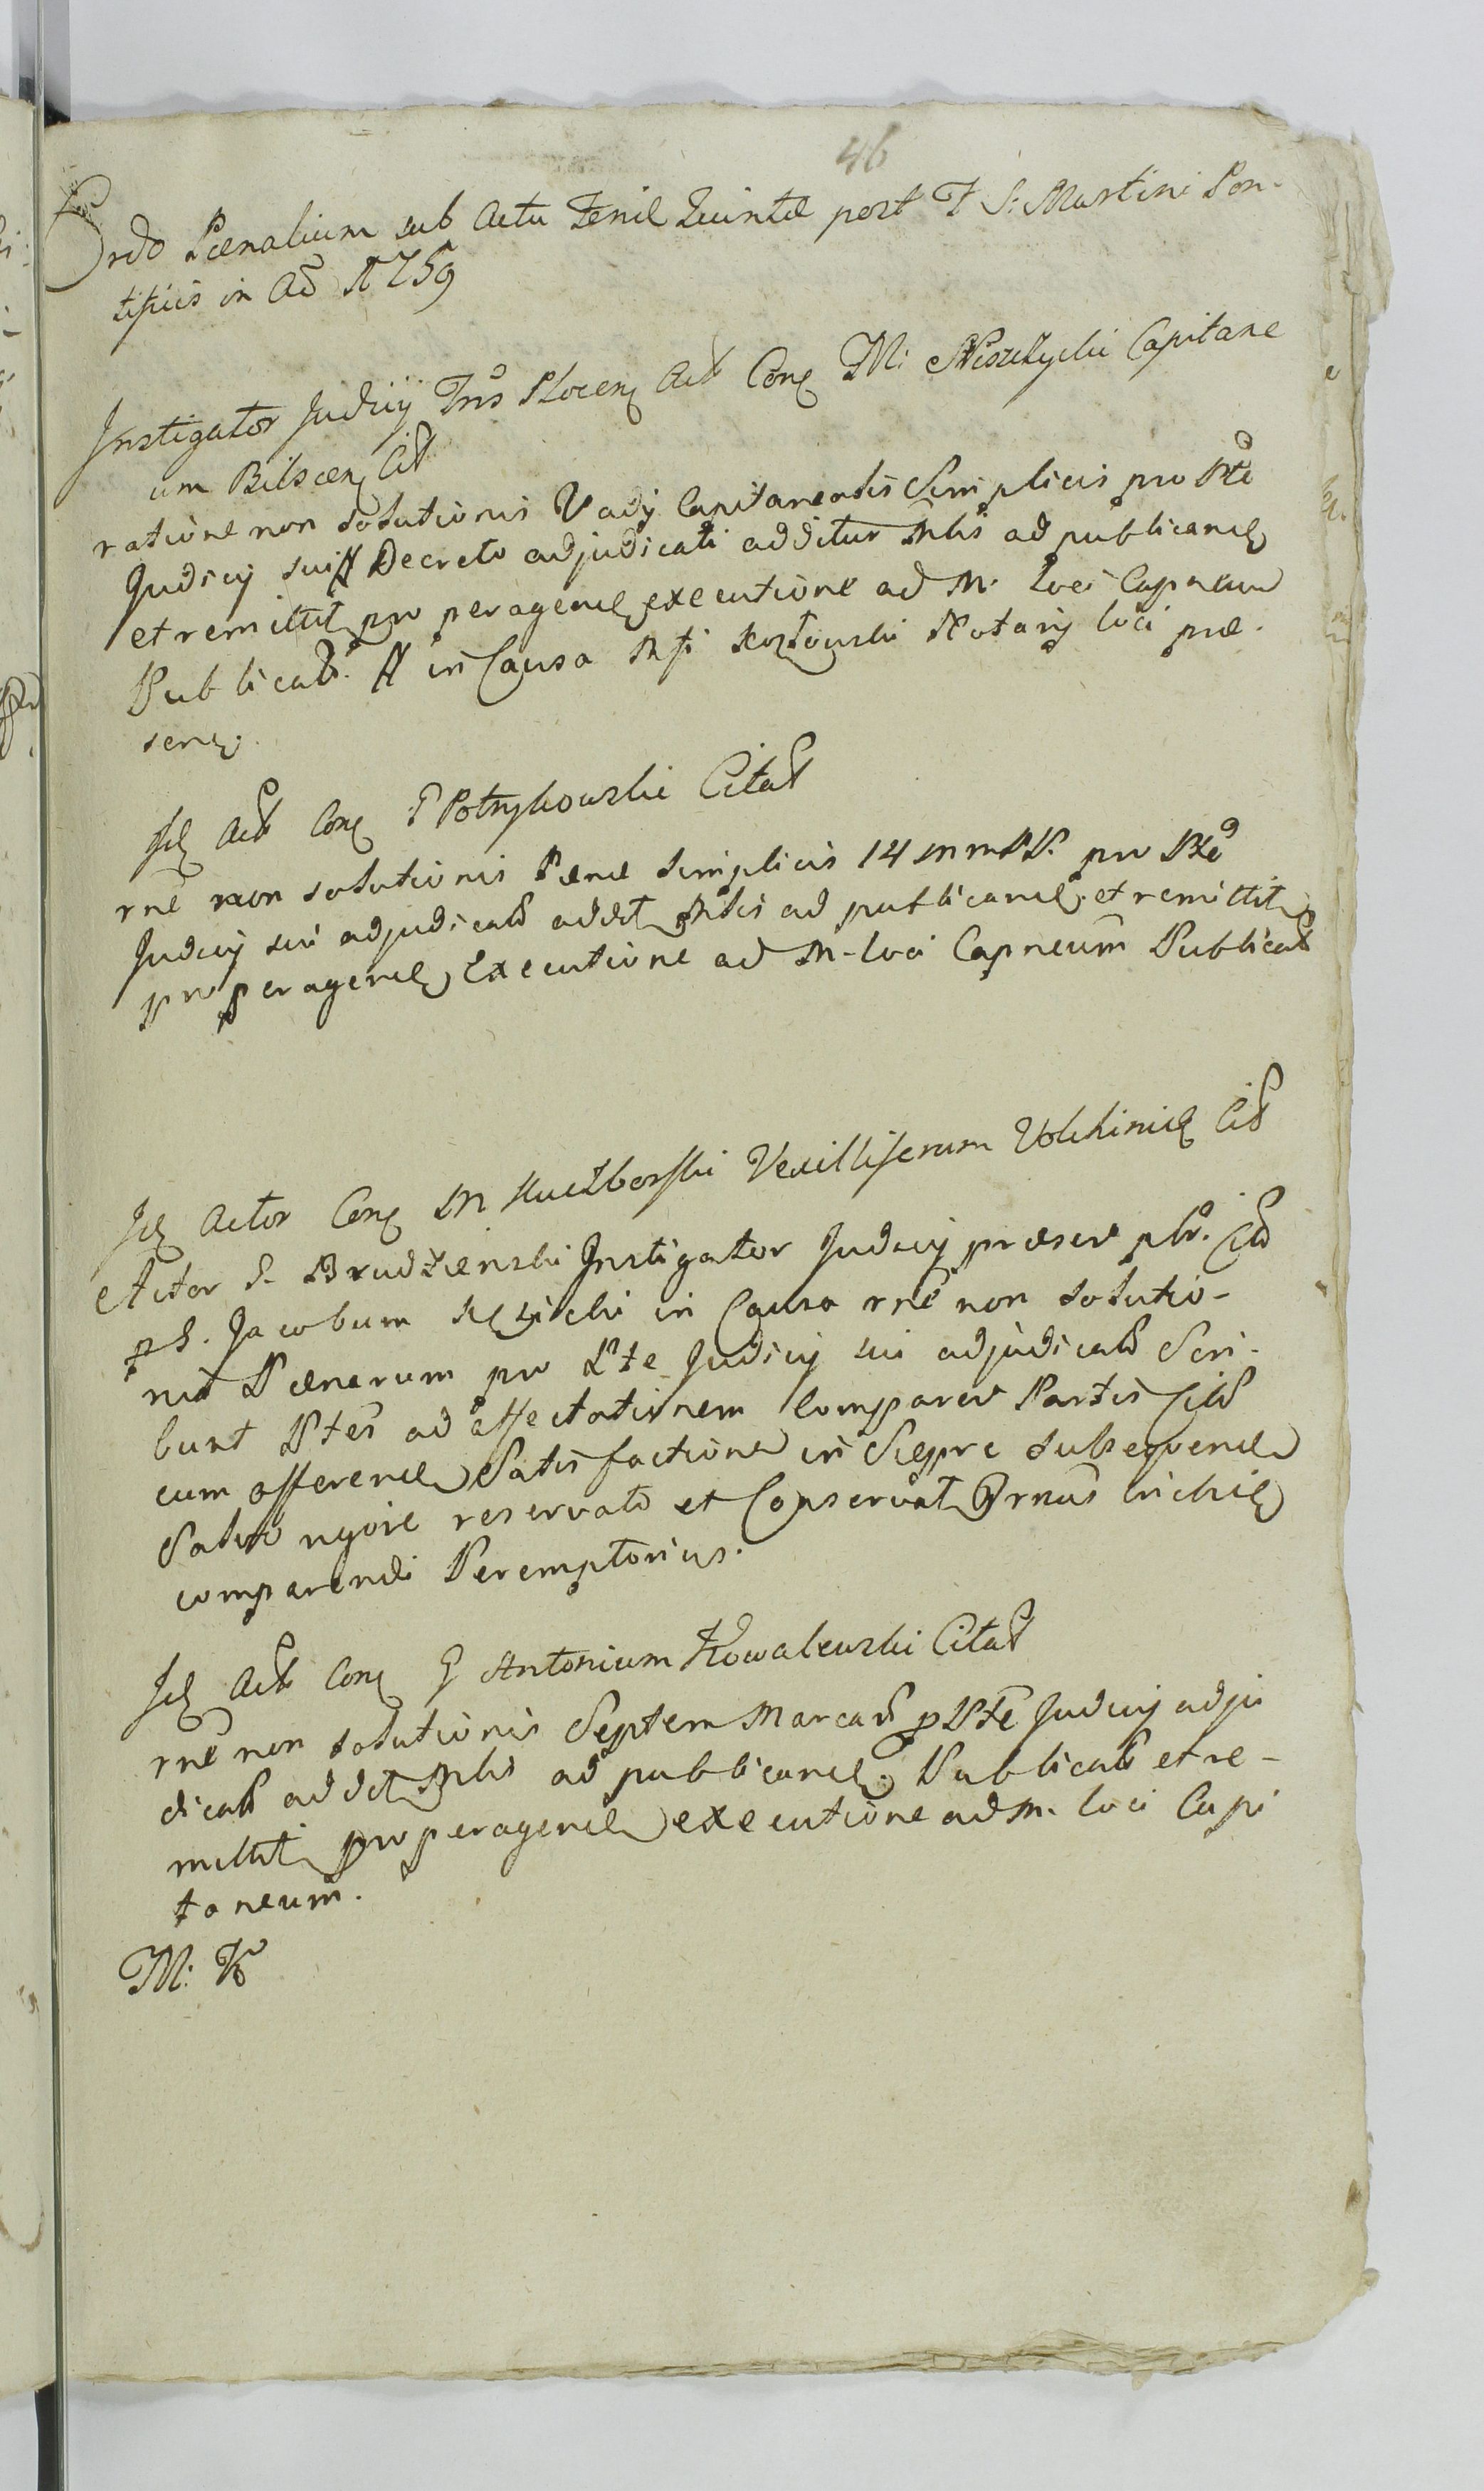 46
Ordo Pœnalium sub Actu Feriæ Quintæ post F S: Martini Pon-
tificis in Ao 1759
Instigator Judicij Tris Plocen Act Con M: Niszczycki Capitane
um Bilscen Cit
ratione non solutionis Vadij Capitanealis Simplicis pro Pte
Judicij sui H Decreto adjudicati additur Mlis ad publicand
et remittit pro peragend executione ad M. Loci Capneum
Publicat. H in Causa Mfi Kozłowski Notarij loci præ-
sen.
Id Act Con G Potrykowski Citat
rne non solutionis Pænæ Simplicis 14 mmPP. pro Pte
Judicij sui adjudicat addit Mlis ad publicand. et remittit
pro peragend Executione ad M. loci Capneum Publicat
Id Actor Con M Kuczborski Vexilliferum Wolhiniæ Cit
Actor S. Brudzienski Instigator Judicij præsen ptr. Cit
p S. Jacobum in Causa rne non solutio-
nis Pænarum pro Pte Judicij sui adjudicat Scri-
bunt Ptes ad affectationem Comparen Partis Cit
cum offerend Satisfactione in Sieprc subsequend
Salvo rigore reservato et Conservat Trnus inchie
comparendi Peremptorius.
Id Act Con G Antonium Kowalewski Citat
rne non solutionis Septem Marcar p Pte Judicij adju
dicat addit Mlis ad publicand. Publicat et re-
mittit pro peragend executione ad M. loci Capi
taneum.
M: K